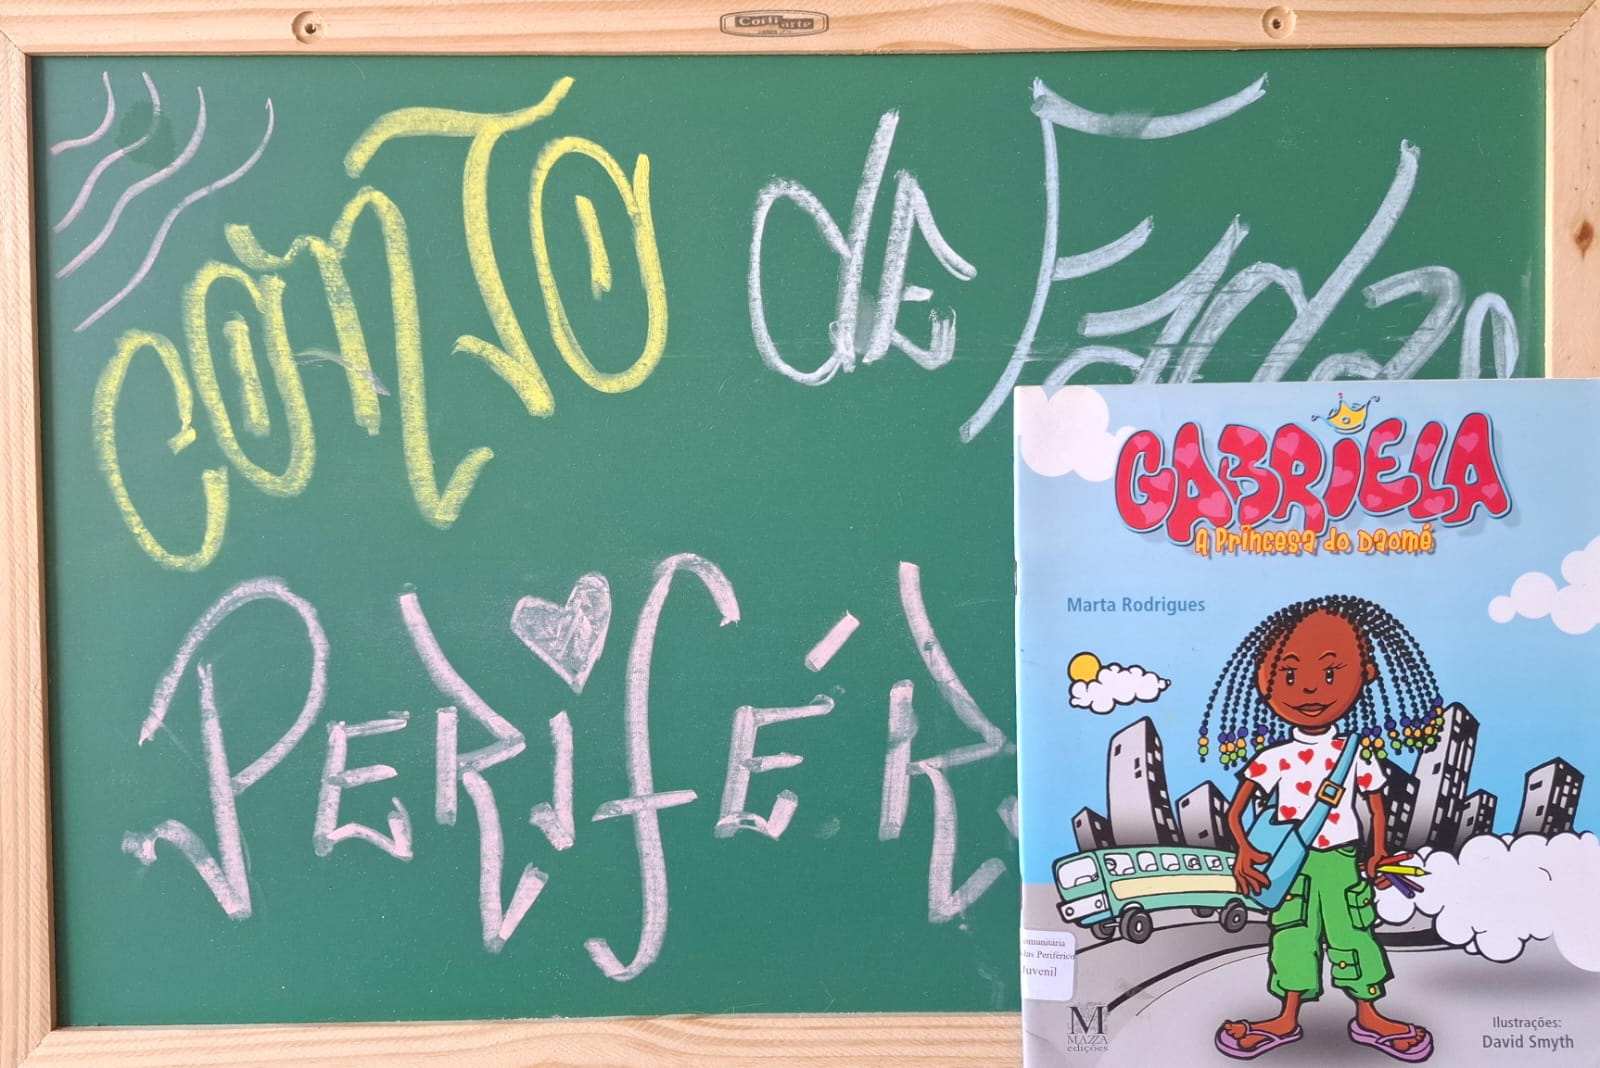 Corti arte
CONTO de Fadas
PERIFÉR
GABRIELA
A Princesa do Daomé
Marta Rodrigues
omunitária
Periférico
Juvenil
M
MAZZA
edições
Ilustrações:
David Smyth